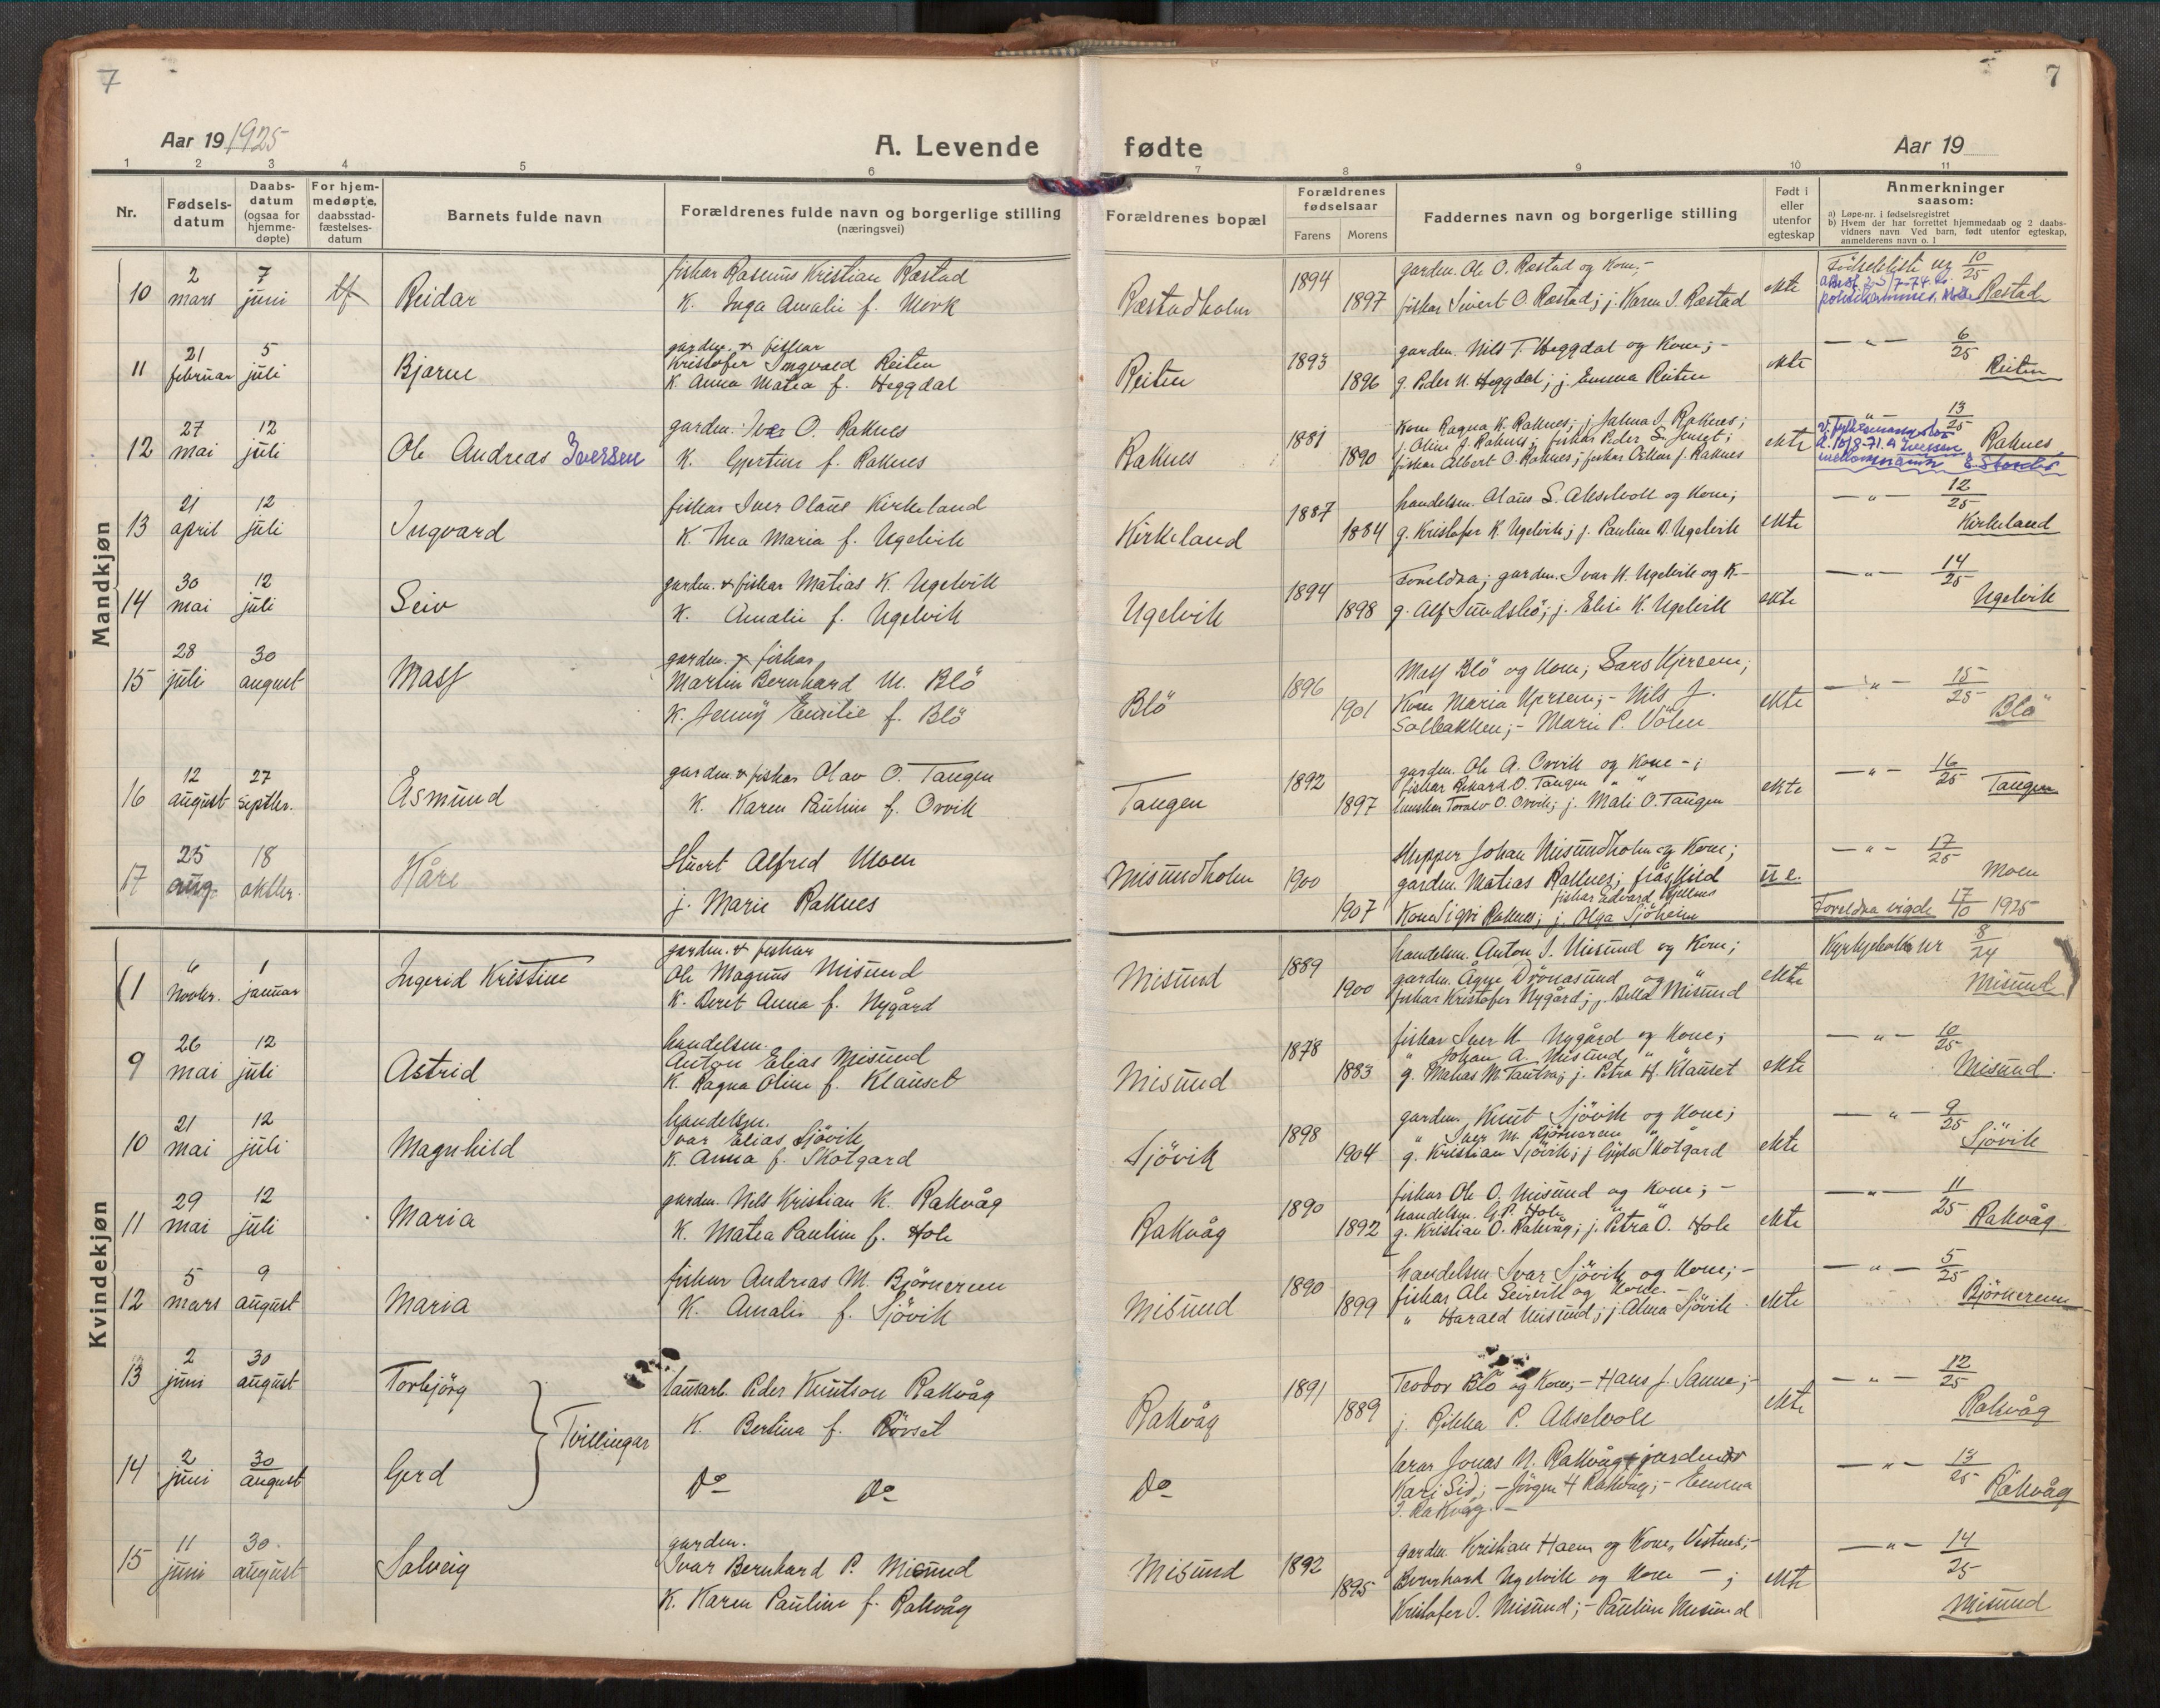 7
7
Aar 19 1925
A. Levende
fødte
Aar 19
1 2 3 4 5 6 7 8 9 10 11
Nr.
Fødsels-
datum
Daabs-
datum
(ogsaa for
hjemme-
døpte)
For hjem-
medøpte,
daabsstad-
fæstelses-
datum
Barnets fulde navn
Forældrenes fulde navn og borgerlige stilling
(næringsvei)
Forældrenes bopæl
Forældrenes
fødselsaar
Farens Morens
Faddernes navn og borgerlige stilling
Født i
eller
utenfor
egteskap
Anmerkninger
saasom:
a) Løpe-nr. i fødselsregistret
b) Hvem der har forrettet hjemmedaab og 2 daabs-
vidners navn Ved barn, født utenfor egteskap,
anmelderens navn o. l
Mandkjøn
10 2 mars 7 juni Reidar
fiskar Rasmus Kristian Røstad
K. Inga Amalie f. Mork
Røstadholm 1894 1897
garden. Ole O. Røstad og Kone;-
fiskar Sivert O. Røstad; j. Karen I. Røstad
ekte
10/25
Røstad
11 21 februar 5 juli Bjarne
garden. & fiskar
Kristofer Ingvald Reiten
K Anna Matea f. Heggdal
Reiten 1893 1896
garden. Nils T. Heggdal og Kone; -
g. Peder N. Heggdal; j. Emma Reiten
ekte
— " — 6/25
Reiten
12 27 mai 12 juli Ole Andreas Iversen
garden. Iver O. Raknes
K. Gjertine f. Raknes
Raknes 1881 1890
Kone Ragna K. Raknes; j. Jalma I. Raknes;
j. Oline J. Raknes; fiskar Peder
fiskar Albert O. Raknes; fiskar Oskar J. Raknes
ekte
13/25
Raknes
13 21 april 12 juli Ingvard
fiskar Iver Olaus Kirkeland
K. Thea Maria f. Ugelvik
Kirkeland 1887 1884
handelsm. Olaus S. Akselvoll og Kone;
g. Kristofer K. Ugelvik; j. Pauline N. Ugelvik
ekte
— " — 12/25
Kirkeland
14 30 mai 12 juli Leiv
garden. & fiskar Matias K. Ugelvik
K. Amalie f. Ugelvik
Ugelvik 1894 1898
Foreldra; garden. Ivar N. Ugelvik og K-
g. Alf Sundsbö; j. Elise K. Ugelvik
ekte
— " — 14/25
Ugelvik
15 28 juli 30 august Mass
garden. & fiskar
Martin Bernhard M. Blö
K. Jenny Emilie f. Blö
Blö 1896 1901
Mass Blö og Kone; Lars Kjersem;
Kone Maria Kjersem; - Nils J.
Solbakken; - Marie P. Völen
ekte
— " — 15/25
Blö
16 12 august 27 septbr. Åsmund
garden. & fiskar Olav O. Tangen
K. Karen Pauline f. Orvik
Tangen 1892 1897
garden. Ole A. Orvik og Kone -;
fiskar Rikard O. Tangen " "
Toralv O. Orvik; j. Mali O. Tangen
ekte
— " — 16/25
Tangen
17 25 aug. 18 oktbr. Kåre
Alfred Moen
j. Marie Raknes
Misundholm 1900 1907
skipper Johan Misundholm og Kone;
garden. Matias Raknes; fiskar Edvard
Kone Sigvi Raknes; j. Olga Sjöheim
u e.
— " — 17/25
Moen
Foreldra vigde 17/10 1925
Kvindekjøn
(1 " Novbr. 1 januar Ingerid Kristine
garden. & fiskar
Ole Magnus Misund
K. Beret Anna f. Nygård
Misund 1889 1900
handelsm. Anton I. Misund og Kone;
garden. Ågge Drönasund og "
fiskar Kristofer Nygård; j. Bella Misund
ekte
Kyrkjebokke nr 8/24
Misund )
9 26 mai 12 juli Astrid
handelsm.
Anton Elias Misund
K Ragna Oline f. Klauset
Misund 1878 1883
fiskar Iver K. Nygård og Kone;
" Johan A. Misund " "
g. Matias M. Tautra; j. Petra H. Klauset
ekte
— " — 10/25
Misund.
10 21 mai 12 juli Magnhild
handelsm.
Ivar Elias Sjövik
K. Anna f. Skotgard
Sjövik 1898 1904
garden. Knut Sjövik og Kone;
" Iver M. Björnerem "
g. Kristian Sjövik; j Gyda Skotgard
ekte
— " — 9/25
Sjövik
11 29 mai 12 juli Maria
garden. Nils Kristian K. Rakvåg
K. Matea Pauline f. Hole
Rakvåg 1890 1892
fiskar Ole O. Misund og Kone; -
handelsm. G.P. Hole " "
g. Kristian O. Rakvåg; j. Petra O. Hole
ekte
— " — 11/25
Rakvåg
12 5 mars 9 august Maria
fiskar Andreas M. Björnerem
K. Amalie f. Sjövik
Misund 1890 1899
handelsm. Ivar Sjövik og Kone; -
fiskar Ole og Kone. -
" Harald Misund; j. Alma Sjövik
ekte
— " — 5/25
Björnerem
13 2 juni 30 august Torbjörg
Tvillingar
lausarb. Peder Knutson Rakvåg
K. Bertina f. Rövset
Rakvåg 1891 1889
Teodor Blö og Kone; - Hans J. Sanne; -
j. Rikka P. Akselvoll
ekte
— " — 12/25
Rakvåg
14 2 juni 30 august Gerd
Do Do
Do
lærar Jonas N. Rakvåg;
Kari Sid; - Jörgen H Rakvåg; - Emma
I. Rakvåg. -
— " — 13/25
Rakvåg
15 11 juni 30. august Solveig
garden.
Ivar Bernhard P. Misund
K. Karen Pauline f. Rakvåg
Misund 1892 1895
garden. Kristian Haem og Kone, Vestnes; -
Bernhard Ugelvik og Kone - ;
Kristofer I. Misund; - Pauline Misund
ekte
— " — 14/25
Misund